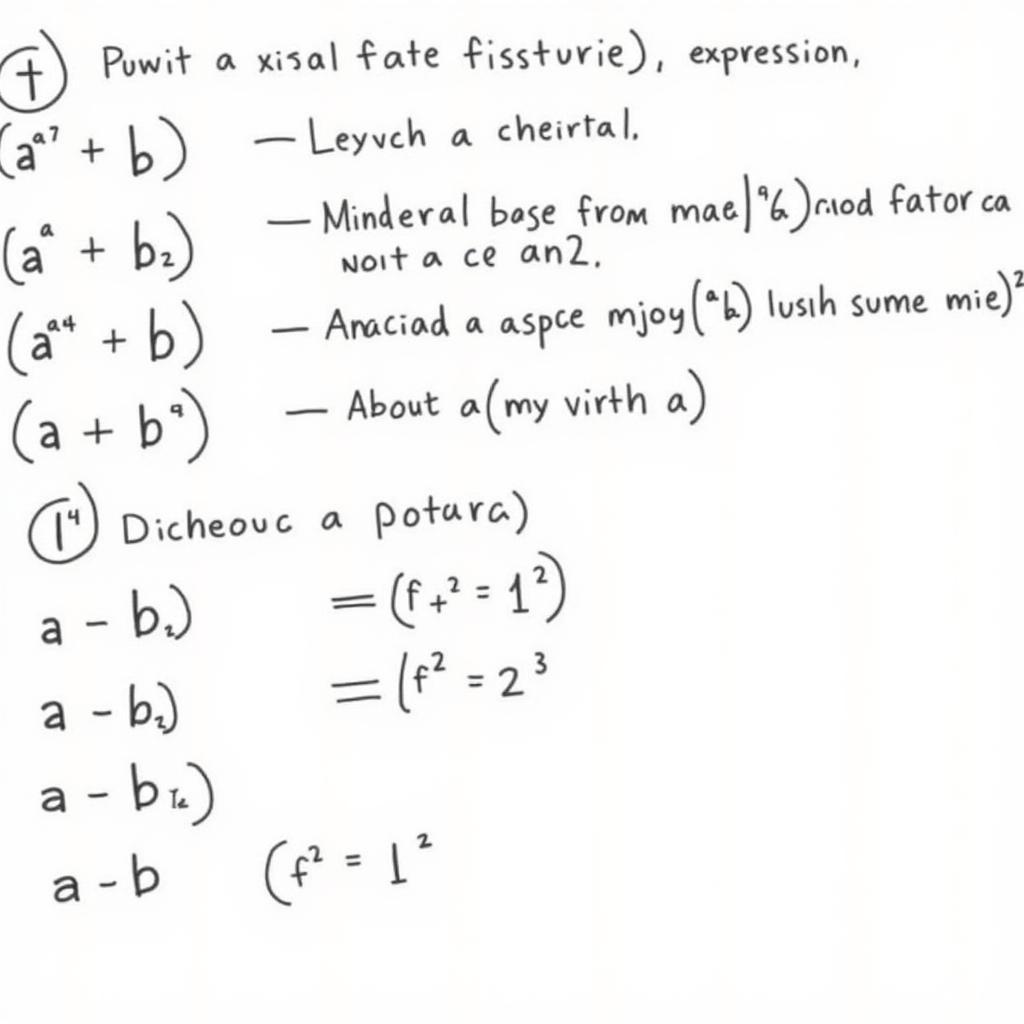 (†) Puwit a xisal fate fissturie), expression,
(a^a7 + b) — Leyvch a cheirtal.
(a^a + b₂) — Minderal base from mae|^a b) mod fator ca
noit a ce an2.
(a^a4 + b) — Anaciad a aspce mjoy(^a b) lusıh sume mie)²
(a + b^9) — About a(my virth a)
(1⁴) Dicheouc a potura)
a - b₂) = (f +² = 1²)
a - b₂) = (f² = 2³
a - b)
a - b (f² = 1²